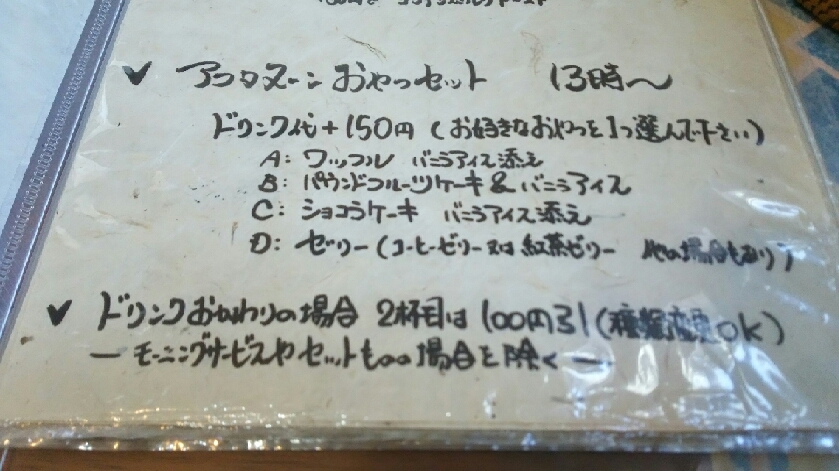 ✓ アフタヌーンおやつセット 13時〜
ドリンク代+150円(お好きなおやつを1つ選んで下さい)
A: ワッフル バニラアイス添え
B: パウンドフルーツケーキ&バニラアイス
C: ショコラケーキ バニラアイス添え
D: ゼリー(コーヒーゼリー又は紅茶ゼリー 他の場合もあり)
✓ ドリンクおかわりの場合 2杯目は100円引(種類変更OK)
ー モーニングサービスやセットものの場合を除く ー